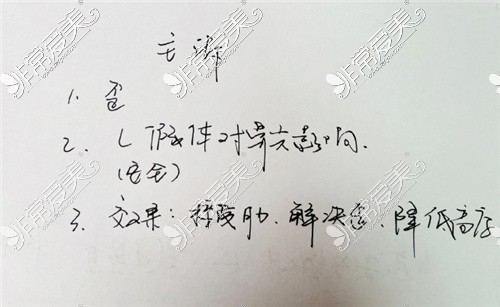 主诉
1. 歪
2. L假体对鼻尖影响.
(安全)
3. 效果: 移度肋. 解决歪. 降低高度
非常爱美